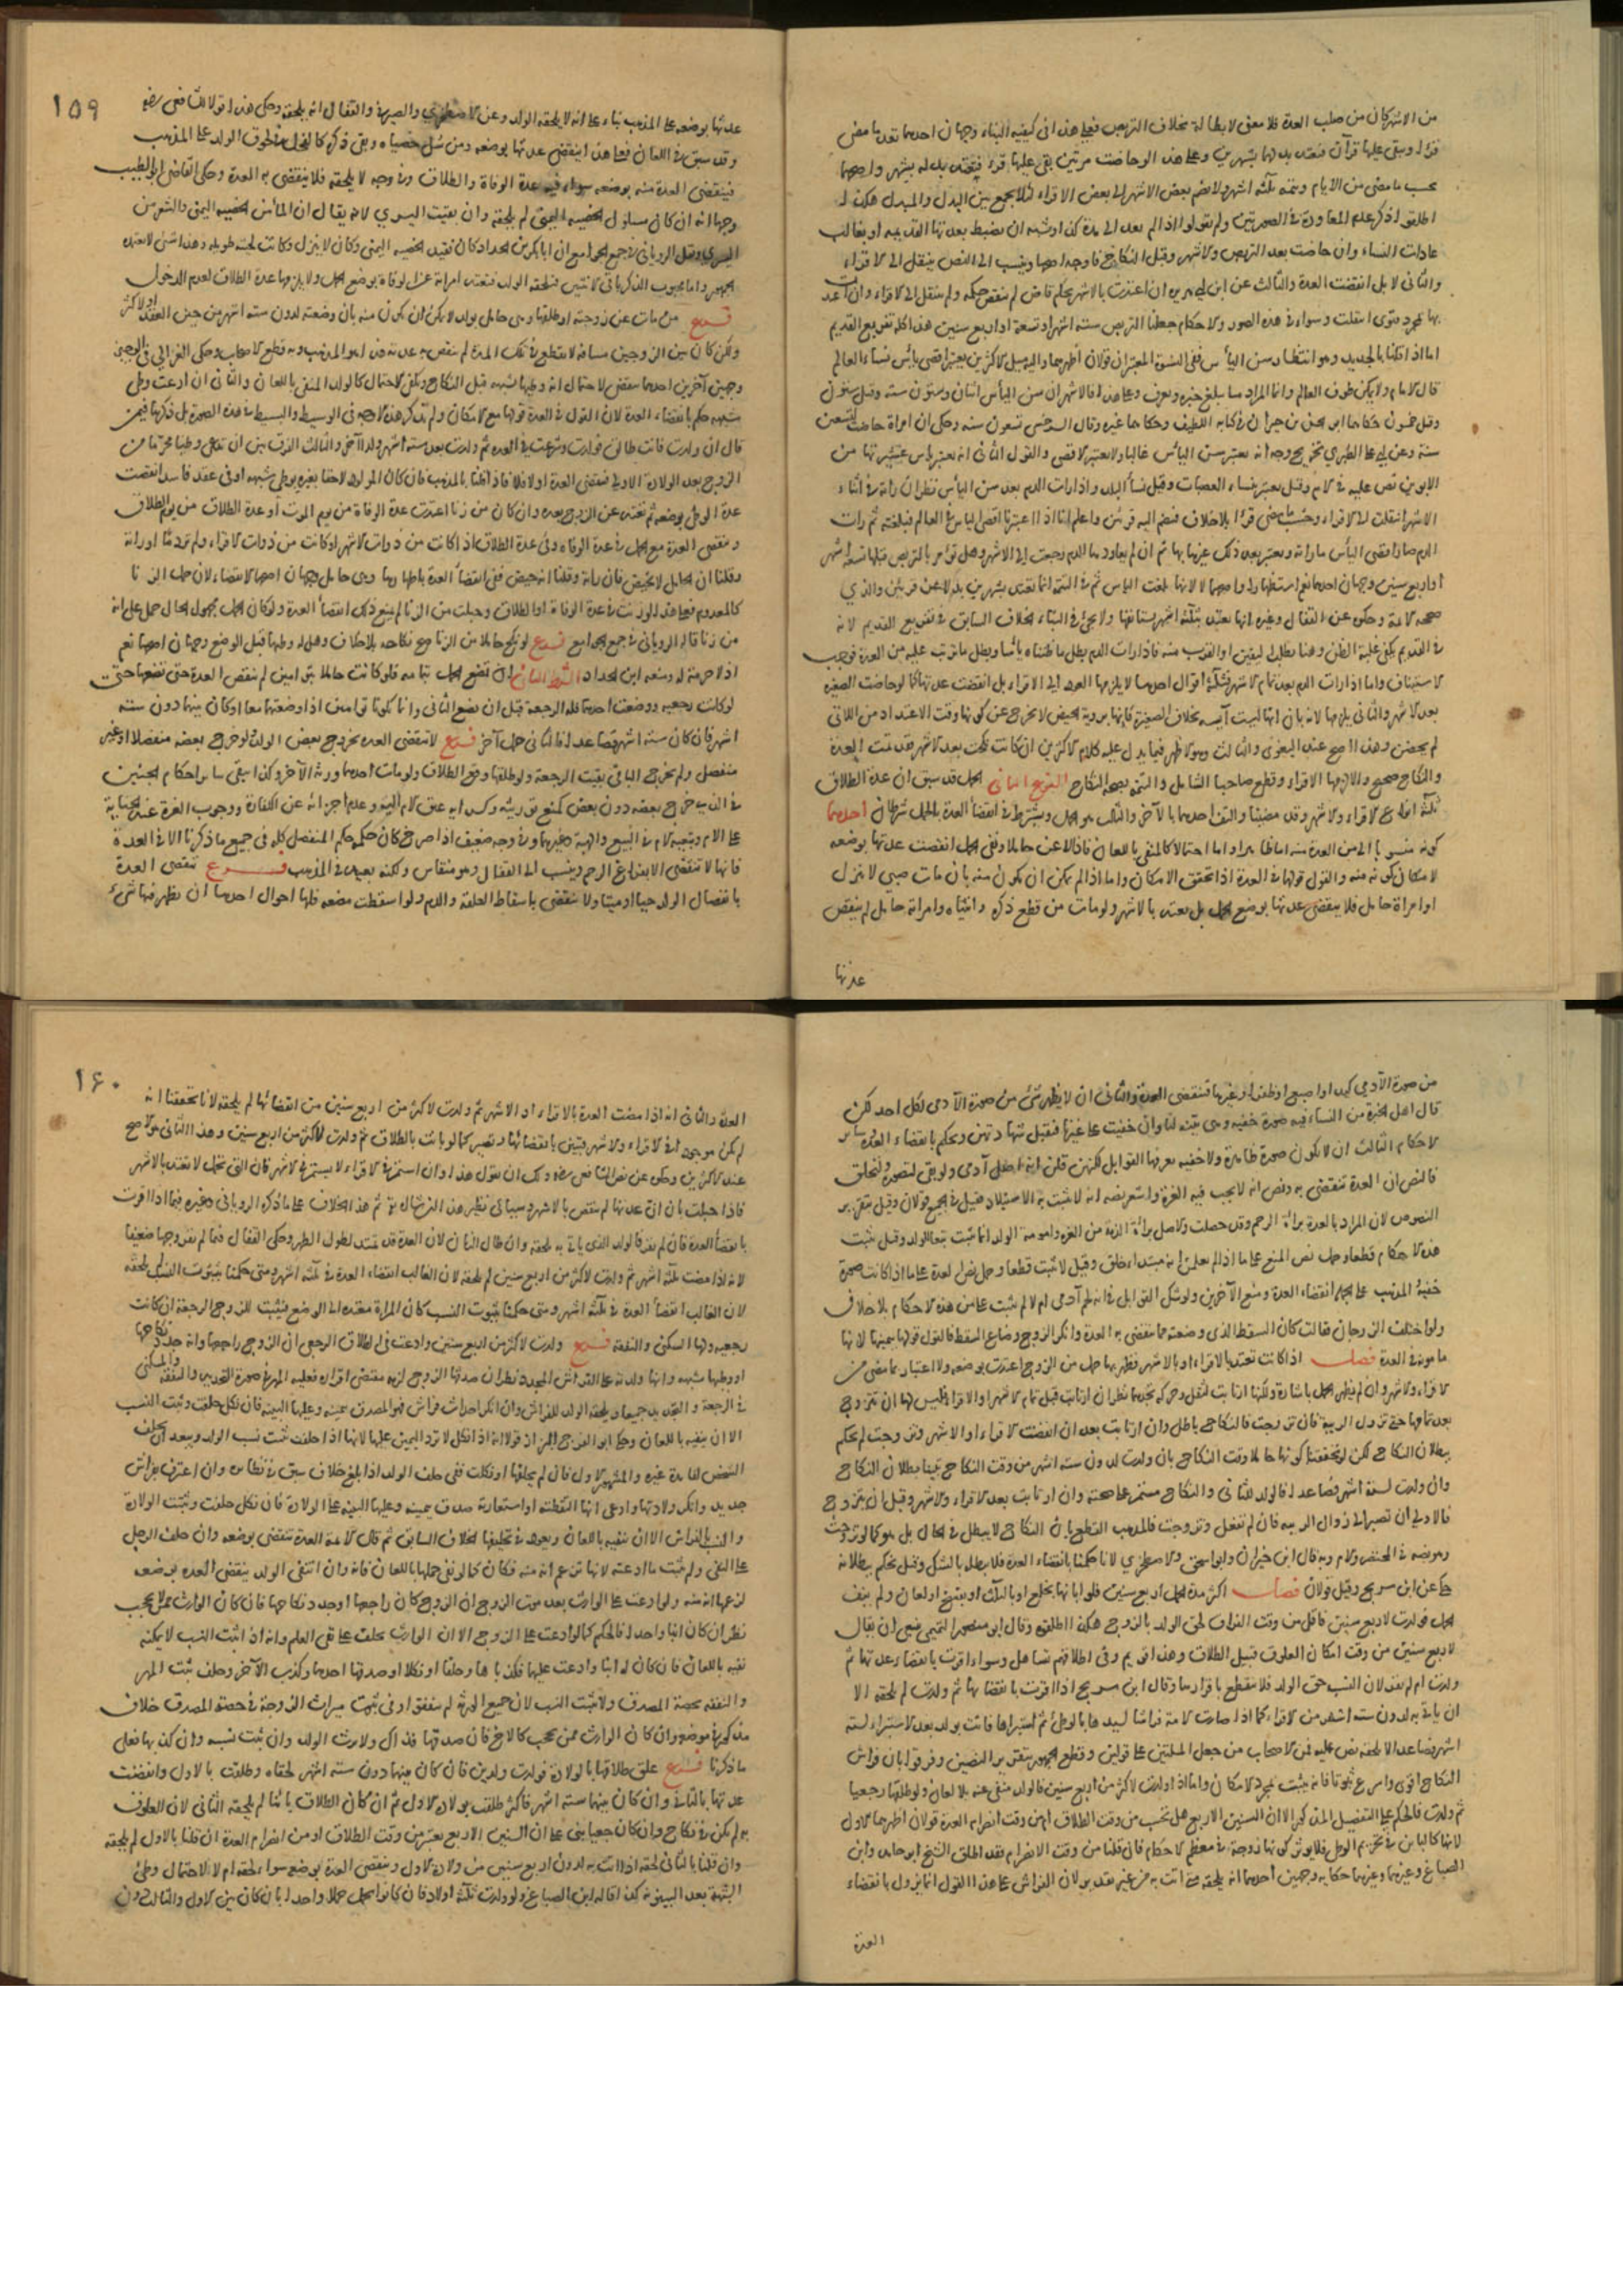 من الاشهر كان من صلب العدة فلا معنى لابطاله بخلاف التربص فعلى هذا في كيفية البناء وجهان احدهما تعد ما مضى
قرءا ويبقى عليها قرآن فتعتد بدلهما بشهرين وعلى هذا لو حاضت مرتين بقى عليها قرء فتعتد بدله بشهر واصحهما
يحسب ما مضى من الايام وتتمه ثلثة اشهر ولا نضم بعض الاشهر الى بعض الاقراء لئلا يجمع بين البدل والمبدل هكذا
عادات النساء وان حاضت بعد التربص والاشهر وقبل النكاح فاوجه اصحها وينسب الى النص ينتقل الى الاقراء
والثاني لا بل انقضت العدة والثالث عن ابن ابي هريره ان اعتدت بالاشهر بحكم قاض لم ينقض حكمه ولم تنتقل الى الاقراء وان اعتدت
بها بمجرد فتوى انتقلت وسواء في هذه الصور والاحكام جعلنا التربص ستة اشهر او تسعة او اربع سنين هذا كله تفريع القديم
اما اذا قلنا بالجديد وهو انتظار سن اليأس ففي النسوة المعتبرات قولان أظهرهما واليه ميل الاكثرين يعتبر اقصى يأس نساء العالم
قال الامام ولا يمكن طوف العالم وانما المراد ما يبلغ خبره ويعرف وعلى هذا فالاشهر ان سن اليأس اثنان وستون سنة وقيل ستون
وقيل خمسون حكاهما ابو الحسن بن خيران في كتابه اللطيف وحكاهما غيره وقال السرخسي تسعون سنة وحكى ان امراة حاضت لتسعين
سنة وعن ابي علي الطبري تخريج وجه انه يعتبر سن اليأس غالبا ولا يعتبر الاقصى والقول الثاني انه يعتبر يأس عشيرتها من
الابوين نص عليه في الام وقيل يعتبر نساء العصبات وقيل نسأ البلد واذا رات الدم بعد سن اليأس نظر ان راته في اثناء
الاشهر انتقلت الى الاقراء وحسب ما مضى قرءا بلاخلاف فنضم اليه قرئين واعلم انا اذا اعتبرنا اقصى الياس في العالم فبلغته ثم رات
الدم صار اقصى اليأس ما راته ويعتبر بعد ذلك غيرها بها ثم ان لم يعاودها الدم رجعت الى الاشهر وهل تؤمر بالتربص قبلها تسعة اشهر
او اربع سنين وجهان احدهما نعم استظهارا واصحهما لا لانها بلغت الياس ثم في التتمة انما تعتد بشهرين بدلا عن قرئين والذي
صححه الائمة وحكوه عن القفال وغيره انها تعتد بثلثة اشهر تستانفها ولا يجئ في البناء الخلاف السابق في تفريع القديم لانه
في القديم يكفي غلبة الظن وهنا يطلب اليقين او القرب منه فاذا رات الدم بطل ما ظنناه يائسا وبطل ما ترتب عليه من العدة فوجب
الاستيناف واما اذا رات الدم بعد تمام الاشهر فثلثة اقوال احدها لا يلزمها العود الى الاقراء بل انقضت عدتها كما لو حاضت الصغيرة
بعد الاشهر والثاني يلزمها لانه بان انها ليست آيسه بخلاف الصغيرة فانها بروية الحيض لا تخرج عن كونها وقت الاعتداد من اللائي
لم يحضن وهذا اصح عند البغوي والثالث وهو الاظهر فيما يدل عليه كلام الاكثرين ان كانت نكحت بعد الاشهر فقد تمت العدة
والنكاح صحيح والا لزمها الاقراء وقطع صاحبا الشامل والتتمة بصحة النكاح النوع الثاني الحمل قد سبق أن عدة الطلاق
ثلثة انواع الاقراء والاشهر وقد مضينا والتف احدهما بالآخر والثالث هو الحمل ويشترط في انقضأ العدة بالحمل شرطان احدهما
كونه منسوبا الى من العدة منه اما ظاهرا واما احتمالا كالمنفي باللعان فاذا لاعن حاملا ونفى الحمل انقضت عدتها بوضعه
لامكان كونه منه والقول قولها في العدة اذا تحقق الامكان واما اذا لم يمكن ان يكون منه بان مات صبي لا ينزل
او امراة حامل فلا ينقضي عدتها بوضع الحمل بل يعتد بالاشهر ولو مات من قطع ذكره وانثياه وامراته حامل لم ينقض
عدتها
١٥٩
عدتها بوضعه على المذهب بناء على انه لا يلحقه الولد وعن الاصطخري والصيرفي والقفال انه يلحقه وحكى هذا قولا للشافعي رضه
وقد سبق في اللعان فعلى هذا ينقضي عدتها بوضعه ومن سُل خصياه وبقى ذكره كالفحل في لحوق الولد على المذهب
فينقضي العدة منه بوضعه سواء فيه عدة الوفاة والطلاق وفي وجه لا يلحقه فلا ينقضي به العدة وحكى القاضي ابو الطيب
وجها انه ان كان مسلول الخصية اليمنى لم يلحقه وان بقيت اليسرى لانه يقال ان الماء من الخصيه اليمنى والشعر من
اليسرى ونقل الروياني في جمع الجوامع ان ابا بكر بن الحداد كان فقيد الخصيه اليمنى وكان لا ينزل وكانت لحيته طويله وهذا شئ لا يعتمده
الجمهور واما مجبوب الذكر باقي الانثيين فيلحقه الولد فتعتد امراته عن الوفاة بوضع الحمل ولا يلزمها عدة الطلاق لعدم الدخول
فرع من مات عن زوجته او طلقها وهي حامل بولد لا يمكن ان يكون منه بان وضعته لدون ستة اشهر من حين العقد او لاكثر
ولكن كان بين الزوجين مسافة لا تقطع في تلك المدة لم تنقض به عدته هذا هو المذهب وبه قطع الاصحاب وحكى الغزالي في الوجيز
وجهين آخرين احدهما ينقضي لاحتمال انه وطئها بشبهه قبل النكاح ويكفي الاحتمال كالولد المنفي باللعان والثاني ان ادعت وطئ
شبهه حكم بانقضاء العدة لان القول في العدة قولها مع الامكان ولم يذكر هذه الاوجه في الوسيط والبسيط في هذه الصورة بل ذكرها فيمن
قال ان ولدت فانت طالق فولدت وشرعت في العدة ثم ولدت بعد ستة اشهر ولدا آخر والثالث الفرق بين ان تدعي وطيا محترما من
الزوج بعد الولادة الاولى فتقضي العدة او لا فلا فاذا قلنا بالمذهب فان كان المولود لاحقا بغيره بوطئ شبهه او في عقد فاسد انقضت
عدة الوطئ بوضعه ثم تعتد عن الزوج بعده وان كان من زنا اعتدت عدة الوفاة من يوم الموت أو عدة الطلاق من يوم الطلاق
وتنقضي العدة مع الحمل في عدة الوفاه وفي عدة الطلاق اذا كانت من ذوات الاشهر او كانت من ذوات الاقراء ولم تر دما او راته
وقلنا ان الحامل لا تحيض فان راته وقلنا انه حيض ففي انقضأ العدة باطهارها وهي حامل وجهان اصحهما الانقضاء لان حمل الزنا
كالمعدوم فعلى هذا لو زنت في عدة الوفاة او الطلاق وحبلت من الزنا لم يمنع ذلك انقضأ العدة ولو كان الحمل مجهول الحال حمل على انه
من زنا قاله الروياني في جمع الجوامع فرع لو نكح حاملا من الزنا صح نكاحه بلاخلاف وهل له وطئها قبل الوضع وجهان اصحهما نعم
اذ لا حرمة له ومنعه ابن الحداد الشرط الثاني ان تضع الحمل بتمامه فلو كانت حاملا بتوامين لم تنقض العدة حتى تضعهما حتى
لو كانت رجعيه ووضعت احدهما فله الرجعة قبل ان تضع الثاني وانما يكونا توامين اذا وضعتهما معا او كان بينهما دون ستة
اشهر فان كان ستة اشهر فصاعدا فالثاني حمل آخر فرع لا تنقضي العدة بخروج بعض الولد ولو خرج بعضه منفصلا او غير
منفصل ولم يخرج الباقي بقيت الرجعة ولو طلقها وقع الطلاق ولو مات احدهما ورثه الآخر وكذا تبقى ساير احكام الجنين
في الذي خرج بعضه دون بعض كمنع توريثه وكسراية عتق الام اليه وعدم اجزائه عن الكفارة ووجوب الغرة عند الجناية
على الام وتبعية الام في البيع والهبة وغيرهما وفي وجه ضعيف اذا صرخ كان حكمه حكم المنفصل كله في جميع ما ذكرنا الا في العدة
فانها لا تنقضي الا بفراغ الرحم وينسب الى القفال وهو منقاس ولكنه بعيد في المذهب فرع تنقضي العدة
بانفصال الولد حيا او ميتا ولا ينقضي باسقاط العلقة والدم ولو اسقطت مضغه فلها احوال احدها ان يظهر فيها شئ
من صورة الآدمي كيد او اصبع او ظفر أو غيرها فتنقضي العدة والثاني ان لا يظهر شئ من صورة الآدمي لكل احد لكن
قال اهل الخبرة من النساء فيه صورة خفيه وهي بينه لنا وان خفيت على غيرنا فتقبل شهادتهن ويحكم بانقضاء العدة وساير
الاحكام الثالث ان لا يكون صورة ظاهرة ولا خفيه يعرفها القوابل لكنهن قلن انه اصل آدمي ولو بقي لتصور ولتخلق
فالنص ان العدة تنقضي به ونص انه لا يجب فيه الغرة واشعر نصه انه لا يثبت به الاستيلاد فقيل في الجميع قولان وقيل بتقرير
النصوص لان المراد بالعدة برائة الرحم وقد حصلت والاصل برائة الذمة من الغرة وامومة الولد انما تثبت تبعا للولد وقيل يثبت
هذه الاحكام قطعا وحمل نص المنع على ما اذا لم يعلمن انه مبتداء خلق وقيل لا تثبت قطعا وحمل نص العدة على ما اذا كانت صورة
خفية المذهب على الحكم بانقضاء العدة ومنع الآخرين ولو شك القوابل في انه لحم آدمي ام لا لم يثبت شئ من هذه الاحكام بلا خلاف
ولو اختلف الزوجان فقالت كان السقط الذي وضعته مما تنقضي به العدة وانكر الزوج وضاع السقط فالقول قولها بيمينها لانها
مامونة في العدة فصل اذا كانت تعتد بالاقراء او بالاشهر فظهر بها حمل من الزوج اعتدت بوضعه ولا اعتبار بما مضى من
الاقراء والاشهر وان لم يظهر الحمل بامارة ولكنها ارتابت لثقل وحركة تجدهما نظر ان ارتابت قبل تمام الاشهر او الاقراء فليس لها ان تتزوج
بعد تمامها حتى تزول الريبة فان تزوجت فالنكاح باطل وان ارتابت بعد ان انقضت الاقراء او الاشهر وتزوجت لم يحكم
ببطلان النكاح لكن لو تحققنا كونها حاملا وقت النكاح بان ولدت لدون ستة اشهر من وقت النكاح تبينا بطلان النكاح
وان ولدت لستة اشهر فصاعدا فالولد للثاني والنكاح مستمر على صحته وان ارتابت بعد الاقراء والاشهر وقبل ان يتزوج
فالاولى ان تصبر الى زوال الريبه فان لم تفعل وتزوجت فالمذهب القطع بان النكاح لا يبطل في الحال بل هو كما لو تزوجت
وهو نصه في المختصر والام وبه قال ابن خيران وابو اسحق والاصطخري لانا حكمنا بانقضاء العدة فلا يبطل بالشك وقيل يحكم ببطلانه
حكي عن ابن سريج وقيل قولان فصل اكثر مدة الحمل اربع سنين فلو ابانها بخلع او بالثلث او بفسخ او لعان ولم ينف
الحمل فولدت لاربع سنين فاقل من وقت الفراق لحق الولد بالزوج هكذا اطلقوه وقال ابو منصور التميمي ينبغي ان يقال
لاربع سنين من وقت امكان العلوق قبيل الطلاق وهذا قويم وفي اطلاقهم تساهل وسواء اقرت بانقضاء عدتها ثم
ولدت ام لم تقر لان النسب حق الولد فلا ينقطع باقرارها وقال ابن سريج اذا اقرت بانقضائها ثم ولدت لم يلحقه الا
ان ياتي به لدون ستة اشهر من الاقراء كما اذا صارت الامة فراشا لسيدها بالوطئ ثم استبراها فاتت بولد بعد الاستبراء لستة
اشهر فصاعدا لا يلحقه نص عليه فمن الاصحاب من جعل المسئلتين على قولين وقطع الجمهور بتقرير النصين وفرقوا بان فراش
النكاح اقوى واسرع ثبوتا فانه يثبت بمجرد الامكان واما اذا ولدت لاكثر من اربع سنين فالولد منفي عنه بلا لعان ولو طلقها رجعيا
ثم ولدت فالحكم على التفصيل المذكور الا ان السنين الاربع هل تحسب من وقت الطلاق أم من وقت انصرام العدة قولان اظهرهما الاول
لانها كالباين في تحريم الوطئ فلا يؤثر كونها زوجة في معظم الاحكام فان قلنا من وقت الانصرام فقد اطلق الشيخ ابو حامد وابن
الصباغ وغيرهما وغيرهما حكاية وجهين أحدهما انه يلحقه متى اتت به من غير تقدير لان الفراش على هذا القول انما يزول بانقضاء
العدة
١٦٠
العدة والثاني انه اذا مضت العدة بالاقراء او الاشهر ثم ولدت لاكثر من اربع سنين من انقضائها لم يلحقه لانا تحققنا انه
لم يكن موجودا في الاقراء والاشهر فتبين بانقضائها وتصير كما لو بانت بالطلاق ثم ولدت لاكثر من اربع سنين وهذا الثاني هو الاصح
عند الاكثرين وحكوه عن نص الشافعي رضه ولك ان تقول هذا وان استمر في الاقراء لا يستمر في الاشهر فان التي تحبل لا تعتد بالاشهر
فاذا حبلت بان ان عدتها لم تنقض بالاشهر وسياتي نظير هذا ثم هذا الخلاف على ما ذكره الروياني وغيره فيما اذا اقرت
بانقضأ العدة فان لم تقر فالولد الذي ياتي به يلحقه وان طال الزمان لان العدة قد تمتد لطول الطهر وحكى القفال فيما لم تقر وجها ضعيفا
لانه اذا مضت ثلثة اشهر ثم ولدت لاكثر من اربع سنين لم يلحقه لان الغالب انقضاء العدة في ثلثة اشهر ومتى حكمنا بثبوت النسب يلحقه
لان الغالب انقضأ العدة في ثلثة اشهر ومتى حكمنا بثبوت النسب كان المراة معتدة الى الوضع فيثبت للزوج الرجعة ان كانت
رجعيه ولها السكنى والنفقة فرع ولدت لاكثر من اربع سنين وادعت في الطلاق الرجعي ان الزوج راجعها وانه جدد نكاحها
او وطئها بشبهه وانها ولدته على الفراش المجدد نظر ان صدقها الزوج لزمه مقتضى اقراره فعليه المهر في صورة التجديد والنفقة والسكنى
في الرجعة والتجديد جميعا ويلحقه الولد للفراش وان انكر احداث فراش فهو المصدق بيمينه وعليها البينة فان نكل حلفت وثبت النسب
الا ان ينفيه باللعان وحكى ابو الفرج البزاز قولا انه اذا نكل لا ترد اليمين عليها لانها اذا حلفت ثبت نسب الولد ويبعد ان يحلف
الشخص لفائدة غيره والمشهور الاول فان لم يحلفها او نكلت ففي حلف الولد اذا بلغ خلاف سبق في نظائره وان اعترف بفراش
جديد وانكر ولادتها وادعى انها التقطته او استعارته صدق بيمينه وعليها البينة على الولادة فان نكل حلفت وثبتت الولادة
والنسب بالفراش الا ان ينفيه باللعان ويعود في تحليفها الخلاف السابق ثم قال الائمة العدة تنقضي بوضعه وان حلف الرجل
على النفي ولم يثبت ما ادعته لانها تزعم انه منه فكان كما لو نفى حملها باللعان فانه وان انتفى الولد ينقضي العدة بوضعه
لزعمها انه منه ولو ادعت على الوارث بعد موت الزوج ان الزوج كان راجعها او جدد نكاحها فان كان الوارث ممن لا يحجب
نظر ان كان ابنا واحدا فالحكم كما لو ادعت على الزوج الا ان الوارث يحلف على نفي العلم وانه اذا ثبت النسب لا يمكنه
نفيه باللعان فان كان له ابنان وادعت عليهما فكذباها وحلفا او نكلا او صدقها احدهما وكذب الآخر وحلف ثبت المهر
والنفقة بحصة المصدق ولا يثبت النسب لان جميع الورثة لم يتفقوا وفي ثبوت ميراث الزوجة في حصة المصدق خلاف
مذكور في موضعه وان كان الوارث ممن يحجب كالاخ فان صدقها فذاك ولا يرث الولد وان ثبت نسبه وان كذبها فعلى
ما ذكرنا فرع علق طلاقها بالولادة فولدت ولدين فان كان بينهما دون ستة اشهر لحقاه وطلقت بالاول وانقضت
عدتها بالثاني وان كان بينهما ستة اشهر فاكثر طلقت بولادة الاول ثم ان كان الطلاق بائنا لم يلحقه الثاني لان العلوق
به لم يكن في نكاح وان كان رجعيا بني على ان السنين الاربع يعتبر من وقت الطلاق او من انصرام العدة ان قلنا بالاول لم يلحقه
وان قلنا بالثاني لحقه اذا اتت به لدون اربع سنين من ولادة الاول وتنقضي العدة بوضعه سواء لحقه ام لا لاحتمال وطئ
الشبهة بعد البينونة كذا قاله ابن الصباغ ولو ولدت ثلثة اولاد فان كانوا حملا واحدا بان كان بين الاول والثالث دون